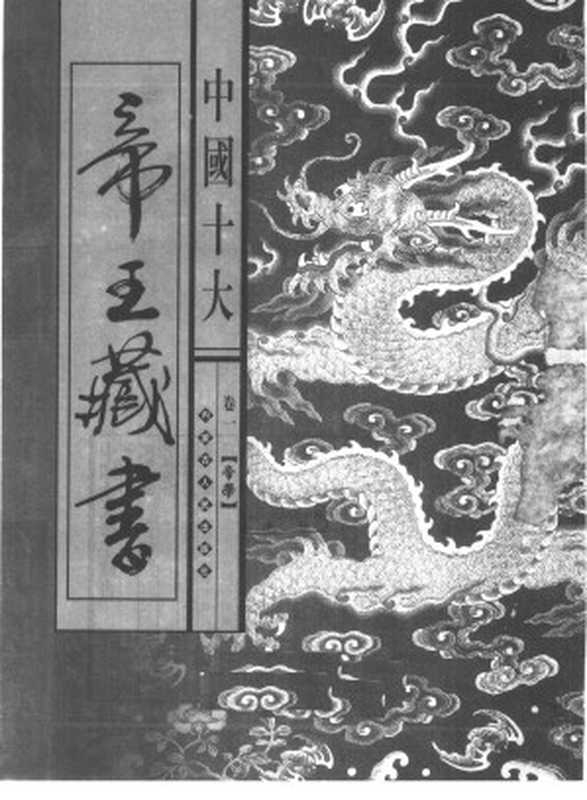 中國十大
帝王藏書
卷一【帝學】